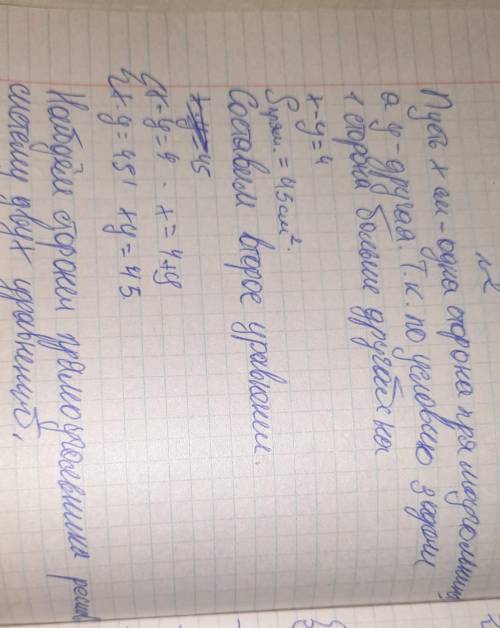 №2
Пусть x см - одна сторона прямоугольника
а y - другая. Т.к. по условию задачи
1 сторона больше другой на
x - y = 4
Sпрям. = 45 см².
Составим второе уравнение.
xy = 45
x - y = 4 x = 4 + y
x · y = 45 xy = 45
Найдем стороны прямоугольника решив
систему двух уравнений.